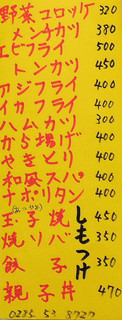 野菜コロッケ 320
メンチカツ 380
エビフライ 500
トンカツ 450
アジフライ 400
イカフライ 400
ハムカツ 300
から揚げ 400
やきとり 400
和風スパ 400
ナポリタン 400
玉子焼 450
焼ソバ 350
餃子 350
親子丼 470
しもつけ
0285.53